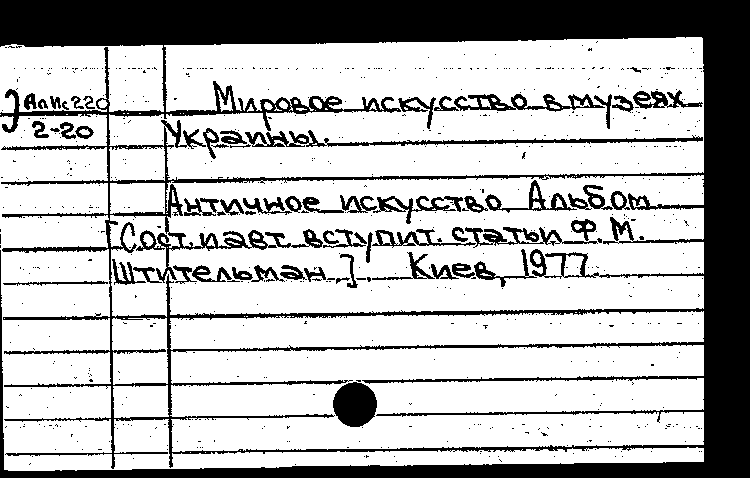 АлИс220
2-20
Мировое искусство в музеях
Украины.
Античное искусство. Альбом.
[Сост. и авт. вступит. статьи Ф. М.
Штительман.]. Киев, 1977.